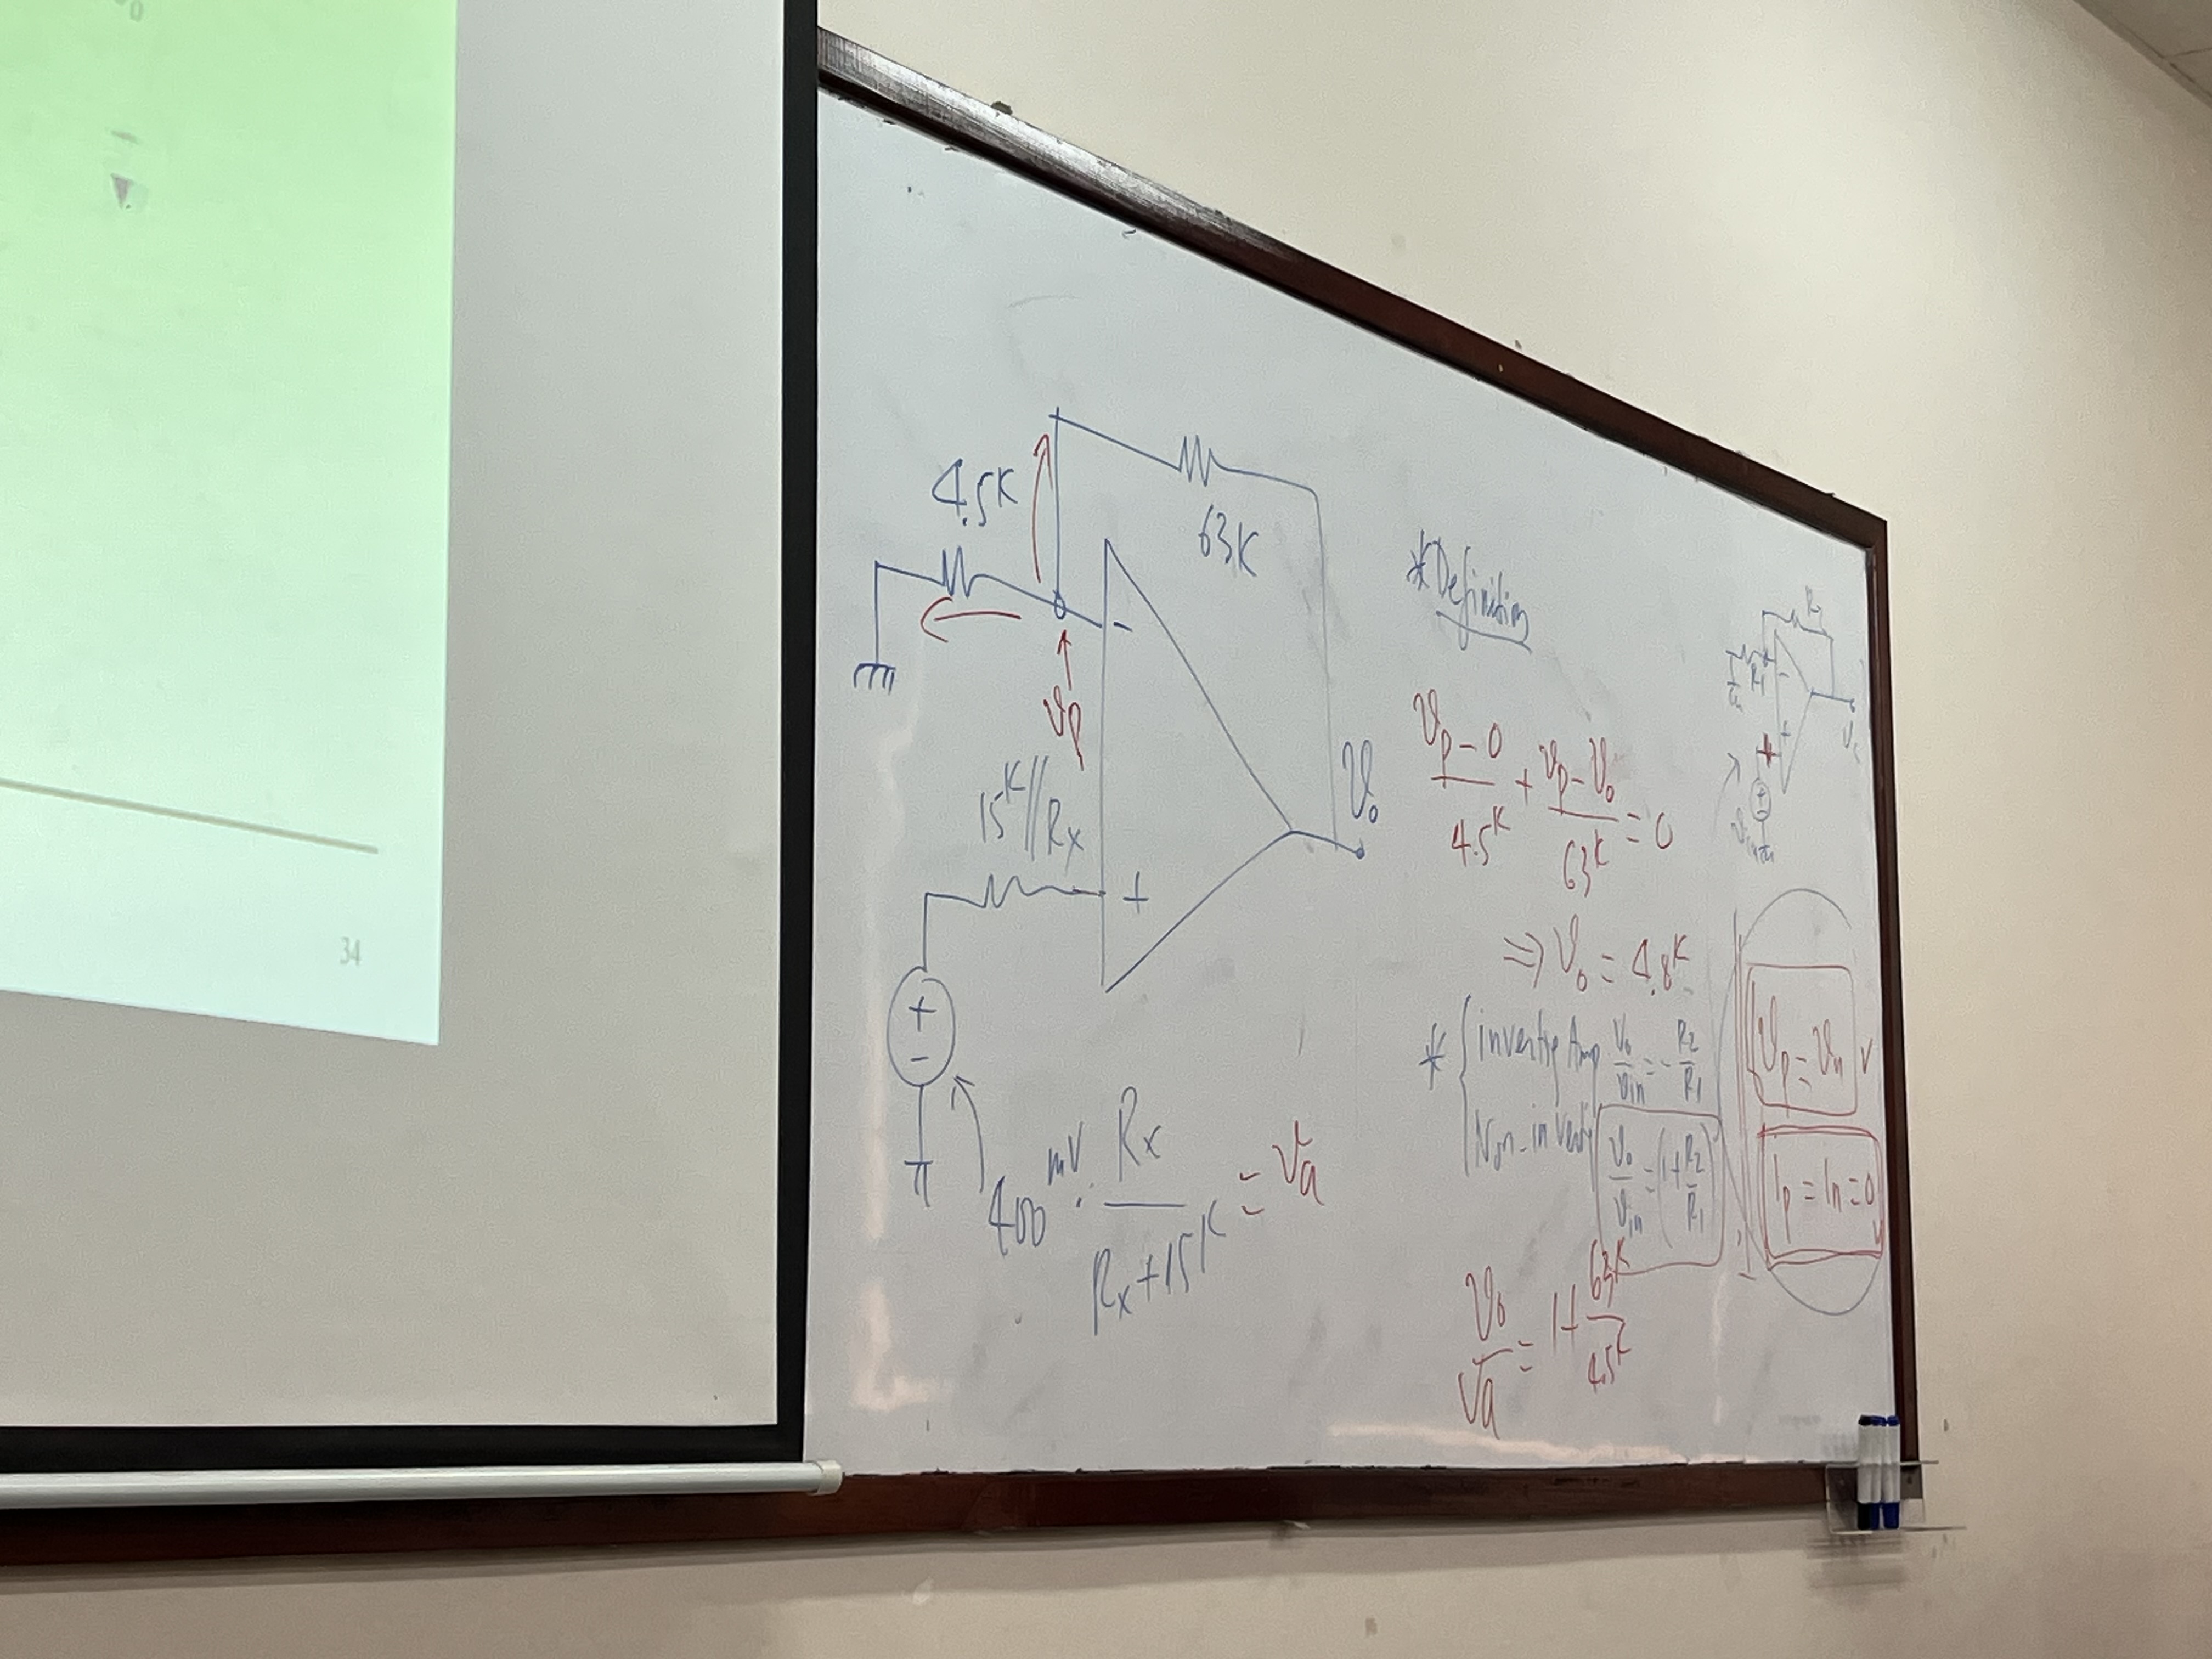 34
4.5K
63K
υp
15K//Rx
-
+
υo
+
-
400mV · Rx / (Rx + 15K) = Va
*Definition
(υp - 0) / 4.5K + (υp - υo) / 63K = 0
⇒ υo = 4.8K
* { inverting Amp Vo/Vin = - R2/R1
Non-invert Vo/Vin = (1 + R2/R1)
υo/Va = 1 + 63K/4.5K
R2
R1
-
+
υp = υn
Ip = In = 0